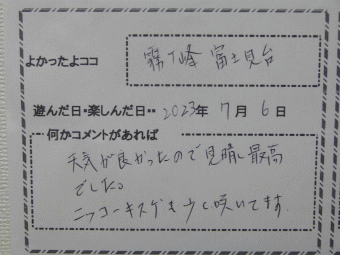 よかったよココ 霧ヶ峰 富士見台
遊んだ日・楽しんだ日・・ 2023年 7月 6日
何かコメントがあれば
天気が良かったので見晴し最高
でした。
ニッコーキスゲも少し咲いてます.